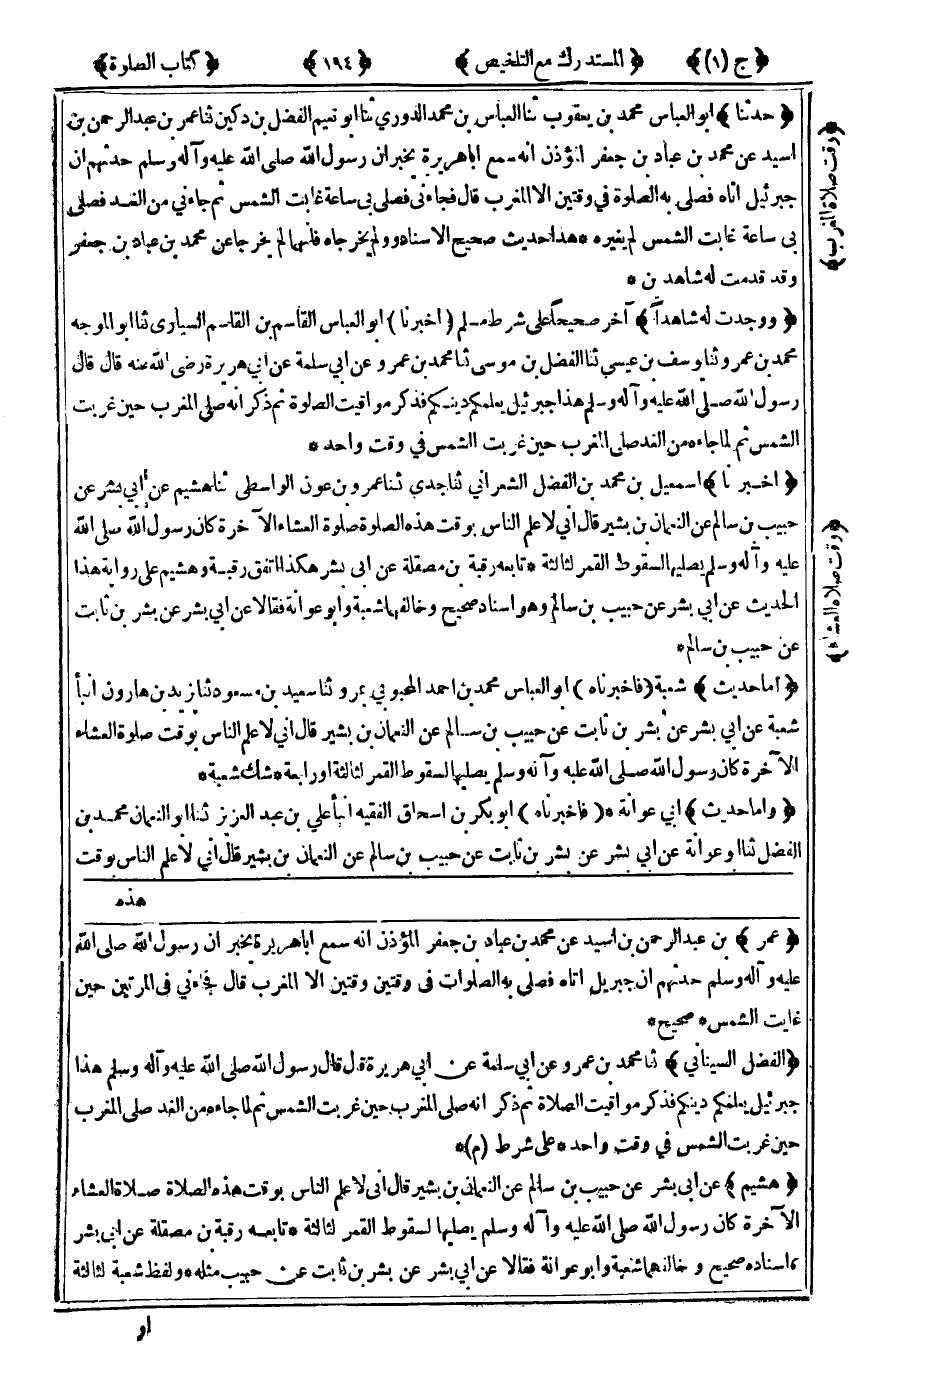 ﴿ ج (١) ﴾ ﴿ المستدرك مع التلخيص ﴾ ﴿ ١٩٤ ﴾ ﴿ كتاب الصلوة ﴾
﴿ حدثنا ﴾ ابو العباس محمد بن يعقوب ثنا العباس بن محمد الدوري ثنا ابو نعيم الفضل بن دكين ثنا عمر بن عبد الرحمن بن
اسيد عن محمد بن عباد بن جعفر المؤذن انه سمع ابا هريرة يخبر ان رسول الله صلى الله عليه وآله وسلم حدثهم ان
جبرئيل اتاه فصلى به الصلوة في وقتين الا المغرب قال فجاءنى فصلى بى ساعة غابت الشمس ثم جاءني من الغد فصلى
بى ساعة غابت الشمس لم يغيره * هذا حديث صحيح الاسناد ولم يخرجاه فانهما لم يخرجا عن محمد بن عباد بن جعفر
وقد قدمت له شاهدين *
﴿ ووجدت له شاهداً ﴾ آخر صحيحاً على شرط مسلم ( اخبرنا ) ابو العباس القاسم بن القاسم السيارى ثنا ابو الموجه
محمد بن عمرو ثنا يوسف بن عيسى ثنا الفضل بن موسى ثنا محمد بن عمرو عن ابي سلمة عن ابي هريرة رضى الله عنه قال قال
رسول الله صلى الله عليه وآله وسلم هذا جبرئيل يعلمكم دينكم فذكر مواقيت الصلوة ثم ذكر انه صلى المغرب حين غربت
الشمس ثم لما جاءه من الغد صلى المغرب حين غربت الشمس في وقت واحد *
﴿ اخبرنا ﴾ اسمعيل بن محمد بن الفضل الشعراني ثنا جدي ثنا عمرو بن عون الواسطى ثنا هشيم عن ابي بشر عن
حبيب بن سالم عن النعمان بن بشير قال اني لاعلم الناس بوقت هذه الصلوة صلوة العشاء الآخرة كان رسول الله صلى الله
عليه وآله وسلم يصليها لسقوط القمر لثالثة * تابعه رقبة بن مصقلة عن ابى بشر هكذا اتفق رقبة وهشيم على رواية هذا
الحديث عن ابي بشر عن حبيب بن سالم وهو اسناد صحيح وخالفهما شعبة وابو عوانة فقالا عن ابي بشر عن بشر بن ثابت
عن حبيب بن سالم *
﴿ اما حديث ﴾ شعبة ( فاخبرناه ) ابو العباس محمد بن احمد المحبوبي بمرو ثنا سعيد بن مسعود ثنا يزيد بن هارون انبأ
شعبة عن ابي بشر عن بشر بن ثابت عن حبيب بن سالم عن النعمان بن بشير قال اني لاعلم الناس بوقت صلوة العشاء
الآخرة كان رسول الله صلى الله عليه وآله وسلم يصليها لسقوط القمر لثالثة او رابعة * شك شعبة *
﴿ واما حديث ﴾ ابي عوانة * ( فاخبرناه ) ابو بكر بن اسحاق الفقيه انبأ علي بن عبد العزيز ثنا ابو النعمان محمد بن
الفضل ثنا ابو عوانة عن ابي بشر عن بشر بن ثابت عن حبيب بن سالم عن النعمان بن بشير قال اني لاعلم الناس بوقت
هذه
﴿ عمر ﴾ بن عبد الرحمن بن اسيد عن محمد بن عباد بن جعفر المؤذن انه سمع ابا هريرة يخبر ان رسول الله صلى الله
عليه وآله وسلم حدثهم ان جبريل اتاه فصلى به الصلوات فى وقتين وقتين الا المغرب قال فجاءني فى المرتين حين
غابت الشمس * صحيح *
﴿ الفضل السيناني ﴾ ثنا محمد بن عمرو عن ابي سلمة عن ابي هريرة قال قال رسول الله صلى الله عليه وآله وسلم هذا
جبرئيل يعلمكم دينكم فذكر مواقيت الصلاة ثم ذكر انه صلى المغرب حين غربت الشمس ثم لما جاءه من الغد صلى المغرب
حين غربت الشمس في وقت واحد * على شرط (م) *
﴿ هشيم ﴾ عن ابى بشر عن حبيب بن سالم عن النعمان بن بشير قال انى لاعلم الناس بوقت هذه الصلاة صلاة العشاء
الآخرة كان رسول الله صلى الله عليه وآله وسلم يصليها لسقوط القمر لثالثة * تابعه رقبة بن مصقلة عن ابي بشر
اسناده صحيح و خالفهما شعبة وابو عوانة فقالا عن ابي بشر عن بشر بن ثابت عن حبيب مثله * ولفظ شعبة لثالثة
او
﴿ وقت صلاة المغرب ﴾
﴿ وقت صلاة العشاء ﴾